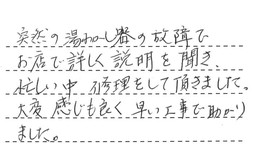 突然の湯わかし器の故障で
お店で詳しく説明を聞き、
忙しい中 修理をして頂きました。
大変 感じも良く 早い工事で助かり
ました。